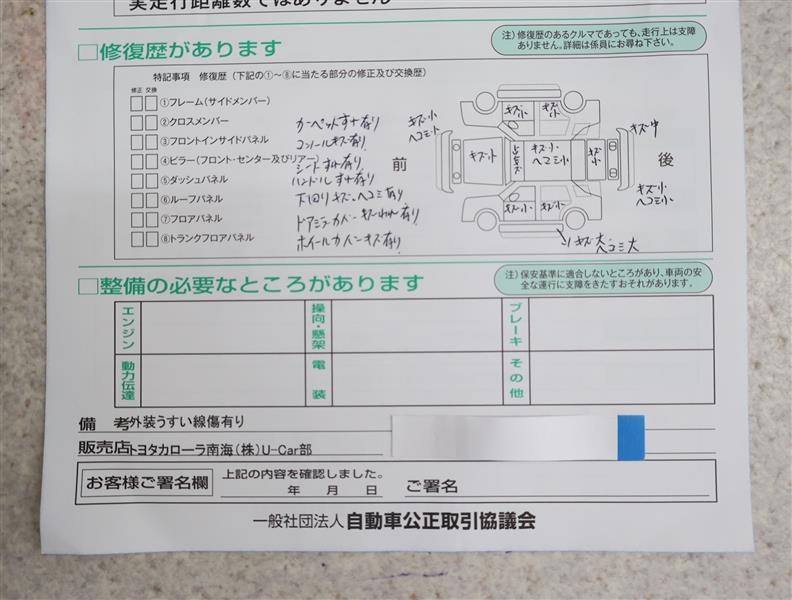 実走行距離数ではありません
□修復歴があります
注）修復歴のあるクルマであっても、走行上は支障
ありません。詳細は係員にお尋ね下さい。
特記事項 修復歴（下記の①～⑧に当たる部分の修正及び交換歴）
修正 交換
①フレーム（サイドメンバー）
②クロスメンバー
③フロントインサイドパネル
④ピラー（フロント・センター及びリアー）
⑤ダッシュパネル
⑥ルーフパネル
⑦フロアパネル
⑧トランクフロアパネル
カーペットすれ有り
コンソールキズ有り
シートすれ有り
ハンドルすれ有り
下回りキズ、ヘコミ有り
ドアミラーカバーキズわれ有り
ホイールカバーキズ有り
前
後
キズ小
ヘコミ小
キズ小
キズ小
キズ小
キズ小
ヘコミ小
キズ小
キズ中
キズ小
ヘコミ小
キズ小
キズ小
キズ大
ヘコミ大
□整備の必要なところがあります
注）保安基準に適合しないところがあり、車両の安
全な運行に支障をきたすおそれがあります。
エンジン
操向・懸架
ブレーキ
動力伝達
電装
その他
備 考 外装うすい線傷有り
販売店 トヨタカローラ南海（株）U-Car部
お客様ご署名欄
上記の内容を確認しました。
年 月 日 ご署名
一般社団法人 自動車公正取引協議会